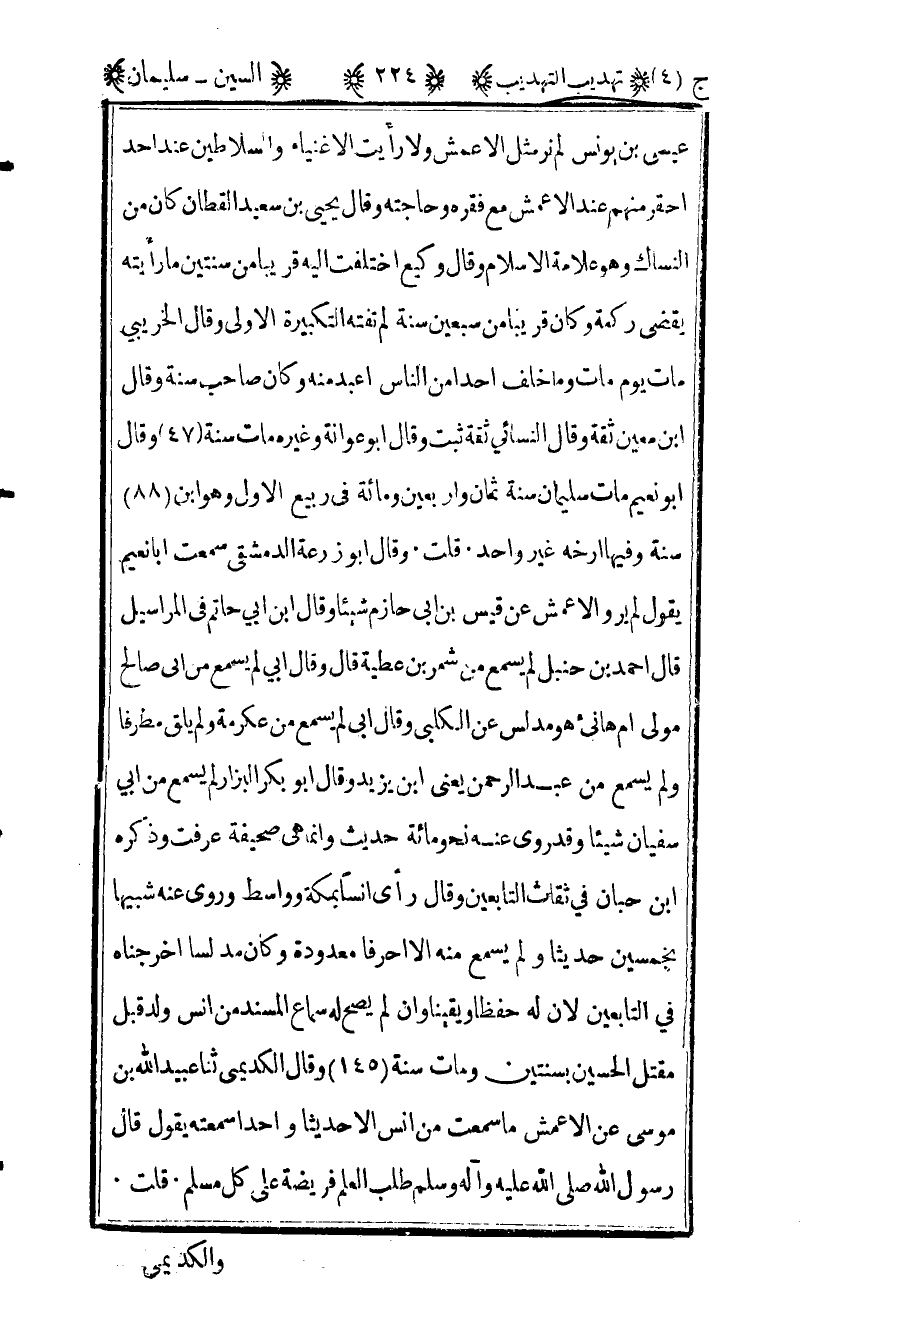 ج (٤) تهذيب التهذيب ٢٢٤ السين ـ سليمان
عيسى بن يونس لم نر مثل الاعمش ولا رأيت الاغنياء والسلاطين عند احد
احقر منهم عند الاعمش مع فقره وحاجته وقال يحيى بن سعيد القطان كان من
النساك وهو علامة الاسلام وقال وكيع اختلفت اليه قريبا من سنتين ما رأيته
يقضى ركعة وكان قريبا من سبعين سنة لم تفته التكبيرة الاولى وقال الخريبي
مات يوم مات وما خلف احدا من الناس اعبد منه وكان صاحب سنة وقال
ابن معين ثقة وقال النسائي ثقة ثبت وقال ابو عوانة وغيره مات سنة (٤٧) وقال
ابو نعيم مات سليمان سنة ثمان واربعين ومائة فى ربيع الاول وهو ابن (٨٨)
سنة وفيها ارخه غير واحد · قلت · وقال ابو زرعة الدمشقى سمعت ابا نعيم
يقول لم يرو الاعمش عن قيس بن ابى حازم شيئا وقال ابن ابي حاتم فى المراسيل
قال احمد بن حنبل لم يسمع من شمر بن عطية قال وقال ابي لم يسمع من ابى صالح
مولى ام هانئ هو مدلس عن الكلبى وقال ابى لم يسمع من عكرمة ولم يلق مطرفا
ولم يسمع من عبد الرحمن يعنى ابن يزيد وقال ابو بكر البزار لم يسمع من ابي
سفيان شيئا وقد روى عنه نحو مائة حديث وانما هى صحيفة عرفت وذكره
ابن حبان في ثقات التابعين وقال رأى انسا بمكة وواسط وروى عنه شبيها
بخمسين حديثا ولم يسمع منه الا احرفا معدودة وكان مدلسا اخرجناه
في التابعين لان له حفظا ويقينا وان لم يصح له سماع المسند من انس ولد قبل
مقتل الحسين بسنتين ومات سنة (١٤٥) وقال الكديمى ثنا عبيد الله بن
موسى عن الاعمش ما سمعت من انس الا حديثا واحدا سمعته يقول قال
رسول الله صلى الله عليه وآله وسلم طلب العلم فريضة على كل مسلم · قلت ·
والكديمى